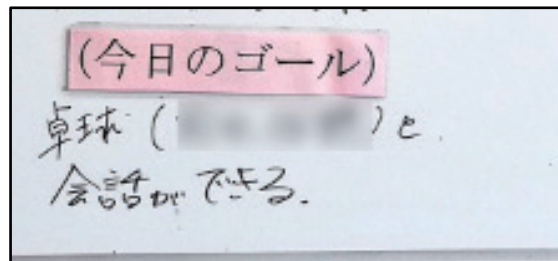 (今日のゴール)
卓球 ( ) と
会話ができる.